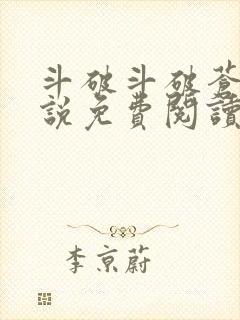 斗破斗破蒼
說免費閱讀
李京蔚